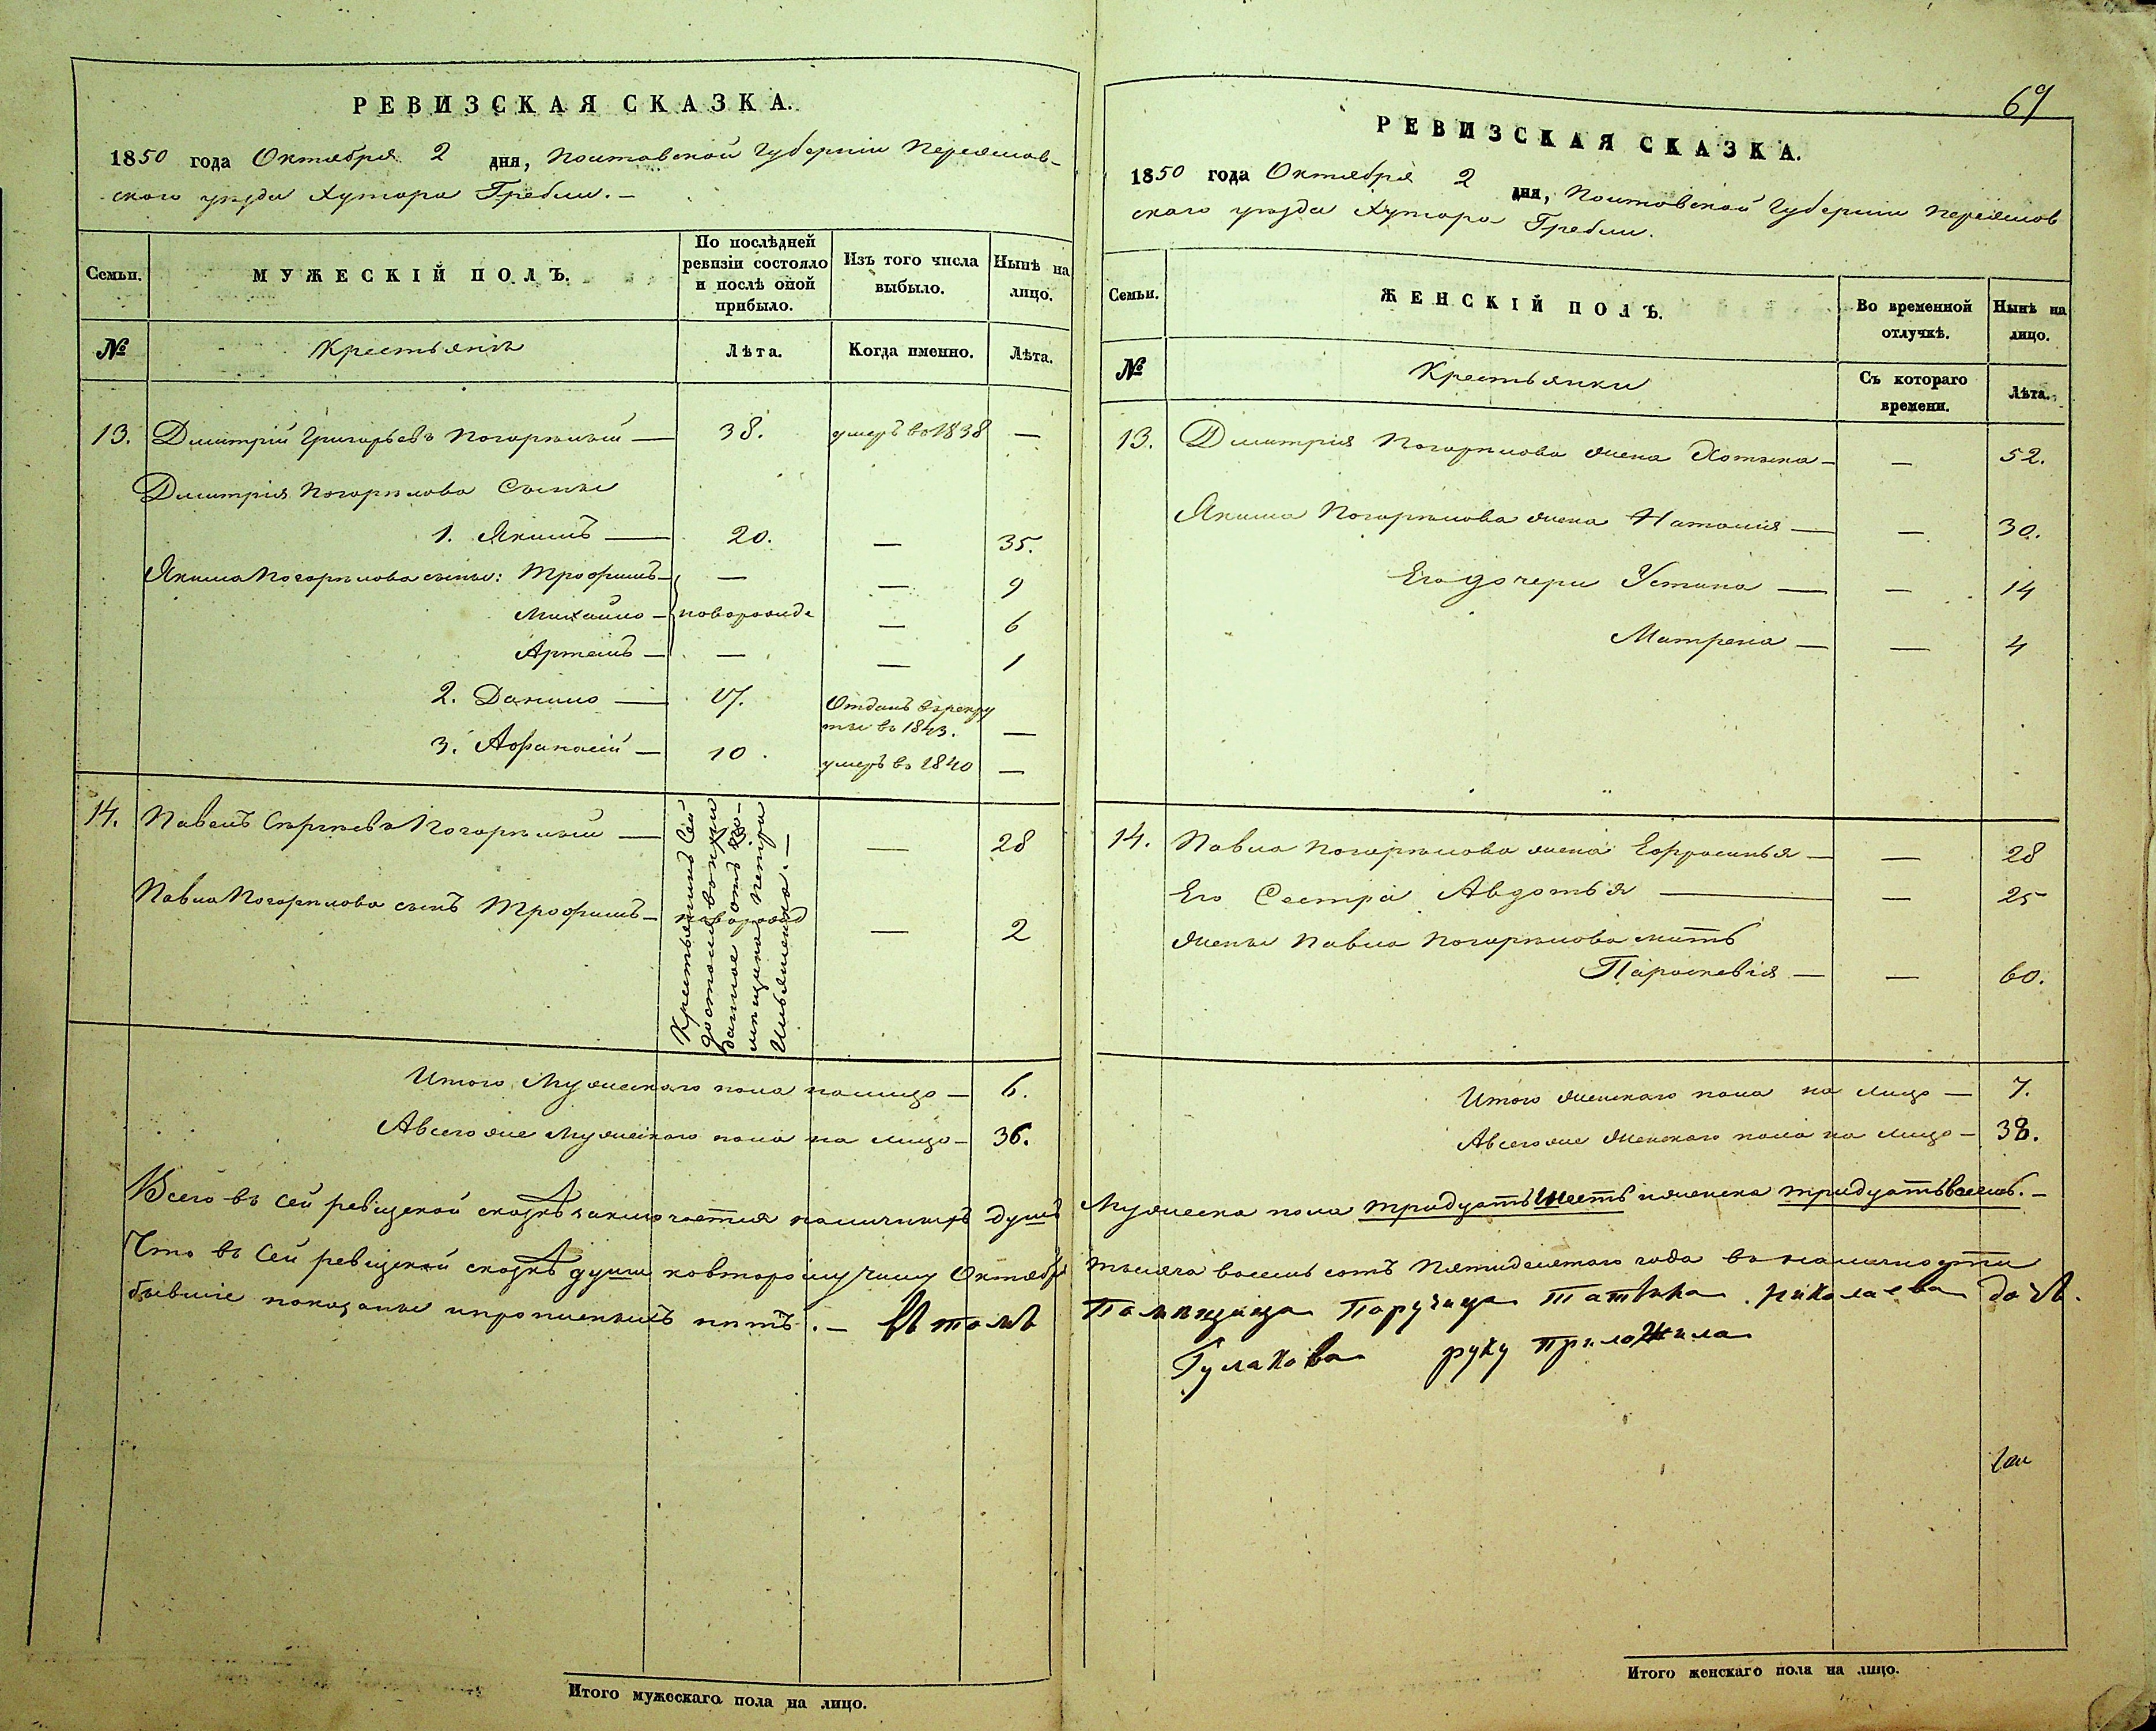 РЕВИЗСКАЯ СКАЗКА.
1850 года Октября 2 дня, Полтавской Губерніи Переяслов-
скаго уѣзда Хутора Гребли.—
Семьи.
МУЖЕСКІЙ ПОЛЪ.
По послѣдней
ревизіи состояло
и послѣ оной
прибыло.
Изъ того числа
выбыло.
Нынѣ на
лицо.
№
Крестьянъ
Лѣта.
Когда именно.
Лѣта.
13. Димитрій Григорьевъ Погорѣлый — 38. умеръ въ 1838 —
Димитрія Погорѣлова Сыны
1. Якимъ — 20. — 35.
Якима Погорѣлова сыны: Трофимъ — — — 9
Михайло — новорожде — 6
Артемъ — — — 1
2. Данило — 17. Отданъ въ рекру
ты въ 1843. —
3. Афанасій — 10. умеръ въ 1840 —
14. Павелъ Сергѣевъ Погорѣлый — — 28
Павла Погорѣлова сынъ Трофимъ — новорожд — 2
Крестьянинъ Сей
достался
данное отъ
мѣщика Петра
Итого Мужескаго пола налицо — 6.
А всего же Мужескаго пола на лицо — 36.
Всего въ сей ревизской сказкѣ заключается наличныхъ душъ
Что въ Сей ревизской сказкѣ души ко второму числу Октября
бывшіе показаны и прописныхъ нѣтъ. — Въ томъ
Итого мужескаго пола на лицо.
69
РЕВИЗСКАЯ СКАЗКА.
1850 года Октября 2 дня, Полтавской Губерніи Переяслов
скаго уѣзда Хутора Гребли.
Семьи.
ЖЕНСКІЙ ПОЛЪ.
Во временной
отлучкѣ.
Нынѣ на
лицо.
№
Крестьянки
Съ котораго
времени.
Лѣта.
13. Димитрія Погорѣлова жена — — 52.
Якима Погорѣлова жена Наталія — — 30.
Его дочери Устина — — 14
Матрена — — 4
14. Павла Погорѣлова жена Ефросинья — — 28
Его Сестра Авдотья — — 25
Жены Павла Погорѣлова мать
Параскевія — — 60.
Итого женскаго пола на лицо — 7.
А всего же Женскаго пола на лицо — 38.
Мужеска пола тридцать шесть и женска тридцать восемь. —
тысяча восемь сотъ Пятидесятаго года въ наличности
Помѣщица Поручица Татьяна Николаева дочь.
Гулакова руку приложила
Итого женскаго пола на лицо.